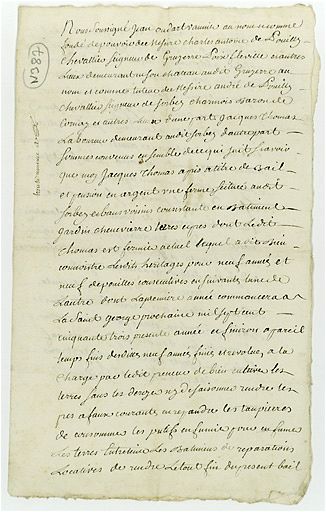 N 587
Nous soussigné Jean oudart vannier au nom et comme
fondé de pouvoir de Messire charles antoine de Pouilly
Chevallier seigneur de Gruyerre
Lieux demeurant en son chateau audit Gruyere au
nom et comme tuteur de Messire andré de Pouilly
chevallier seigneur de forbez charmois Baron de
Cornay et autres Lieux d'une part Jacques Thomas
Laboureur demeurant audit forbez d'autre part
Sommes convenus ensemble de ce qui suit scavoir
que moy Jacques Thomas ay pris a titre de Bail
et pension en argent une ferme scituée audit
forbez et bans voisins consistante en Batiment
Jardin chenevierre terres et prez dont Ledit
Thomas est fermier actuel lequel a dit bien
connoistre Lesdits heritages pour neuf années et
neuf depouilles consecutives en suivants l'une de
L'autre dont La premiere année commencera a
La Saint george prochaine mil sept cent
cinquante trois presente année et finiron a pareil
temps finis desdittes neuf années finies et revolues a la
Charge par ledit preneur de bien cultiver les
terres sans les deroyer ny desaisonner rendre les
prez a faux courante en repandre les taupieres
de consommer les en fumier pour en fumer
Les terres Entretenir Les Batiments de reparations
Locatives de rendre Le tout fin du present bail